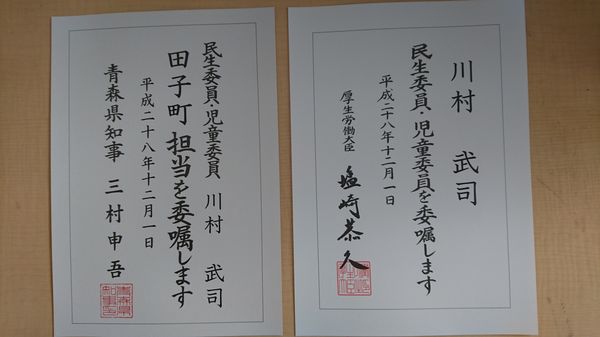 民生委員・児童委員　川村　武司
田子町担当を委嘱します
平成二十八年十二月一日
青森県知事　三村申吾
青森県知事之印
川村　武司
民生委員・児童委員を委嘱します
平成二十八年十二月一日
厚生労働大臣　塩崎恭久